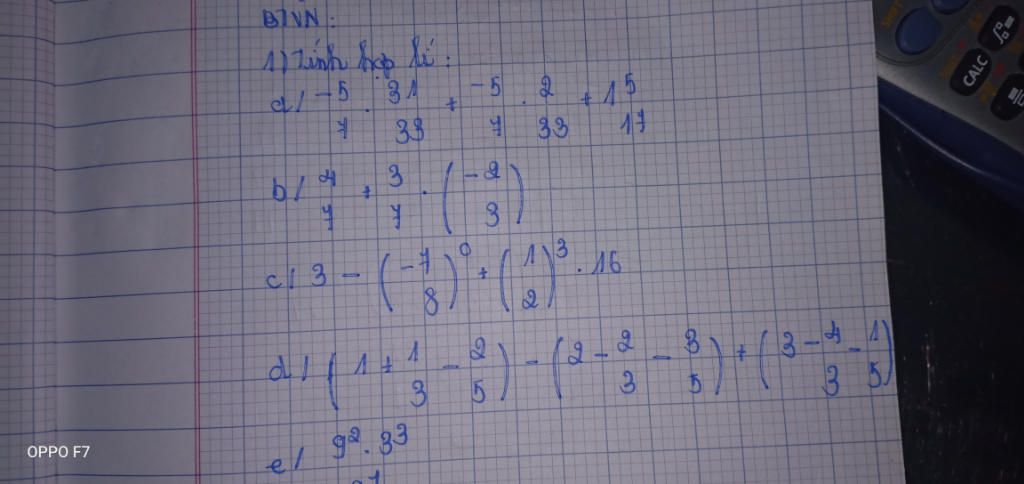 BTVN:
1) Tính hợp lí:
a/ -5/7 . 31/33 + -5/7 . 2/33 + 1 5/17
b/ 4/7 + 3/7 . (-2/3)
c/ 3 - (-7/8)^0 + (1/2)^3 . 16
d/ (1 + 1/3 - 2/5) - (2 - 2/3 - 3/5) + (3 - 4/3 - 1/5)
e/ 9^2 . 3^3
CALC
OPPO F7